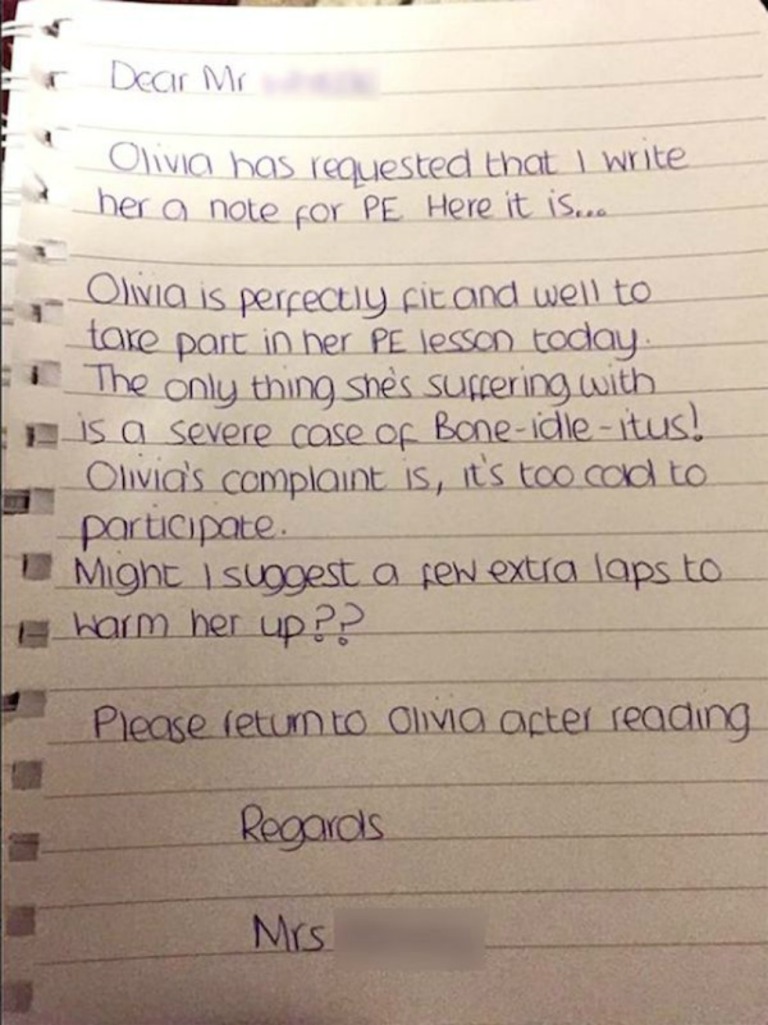 Dear Mr
Olivia has requested that I write
her a note for PE Here it is...
Olivia is perfectly fit and well to
take part in her PE lesson today.
The only thing she's suffering with
is a severe case of Bone-idle-itus!
Olivia's complaint is, it's too cold to
participate.
Might I suggest a few extra laps to
warm her up??
Please return to Olivia after reading
Regards
Mrs